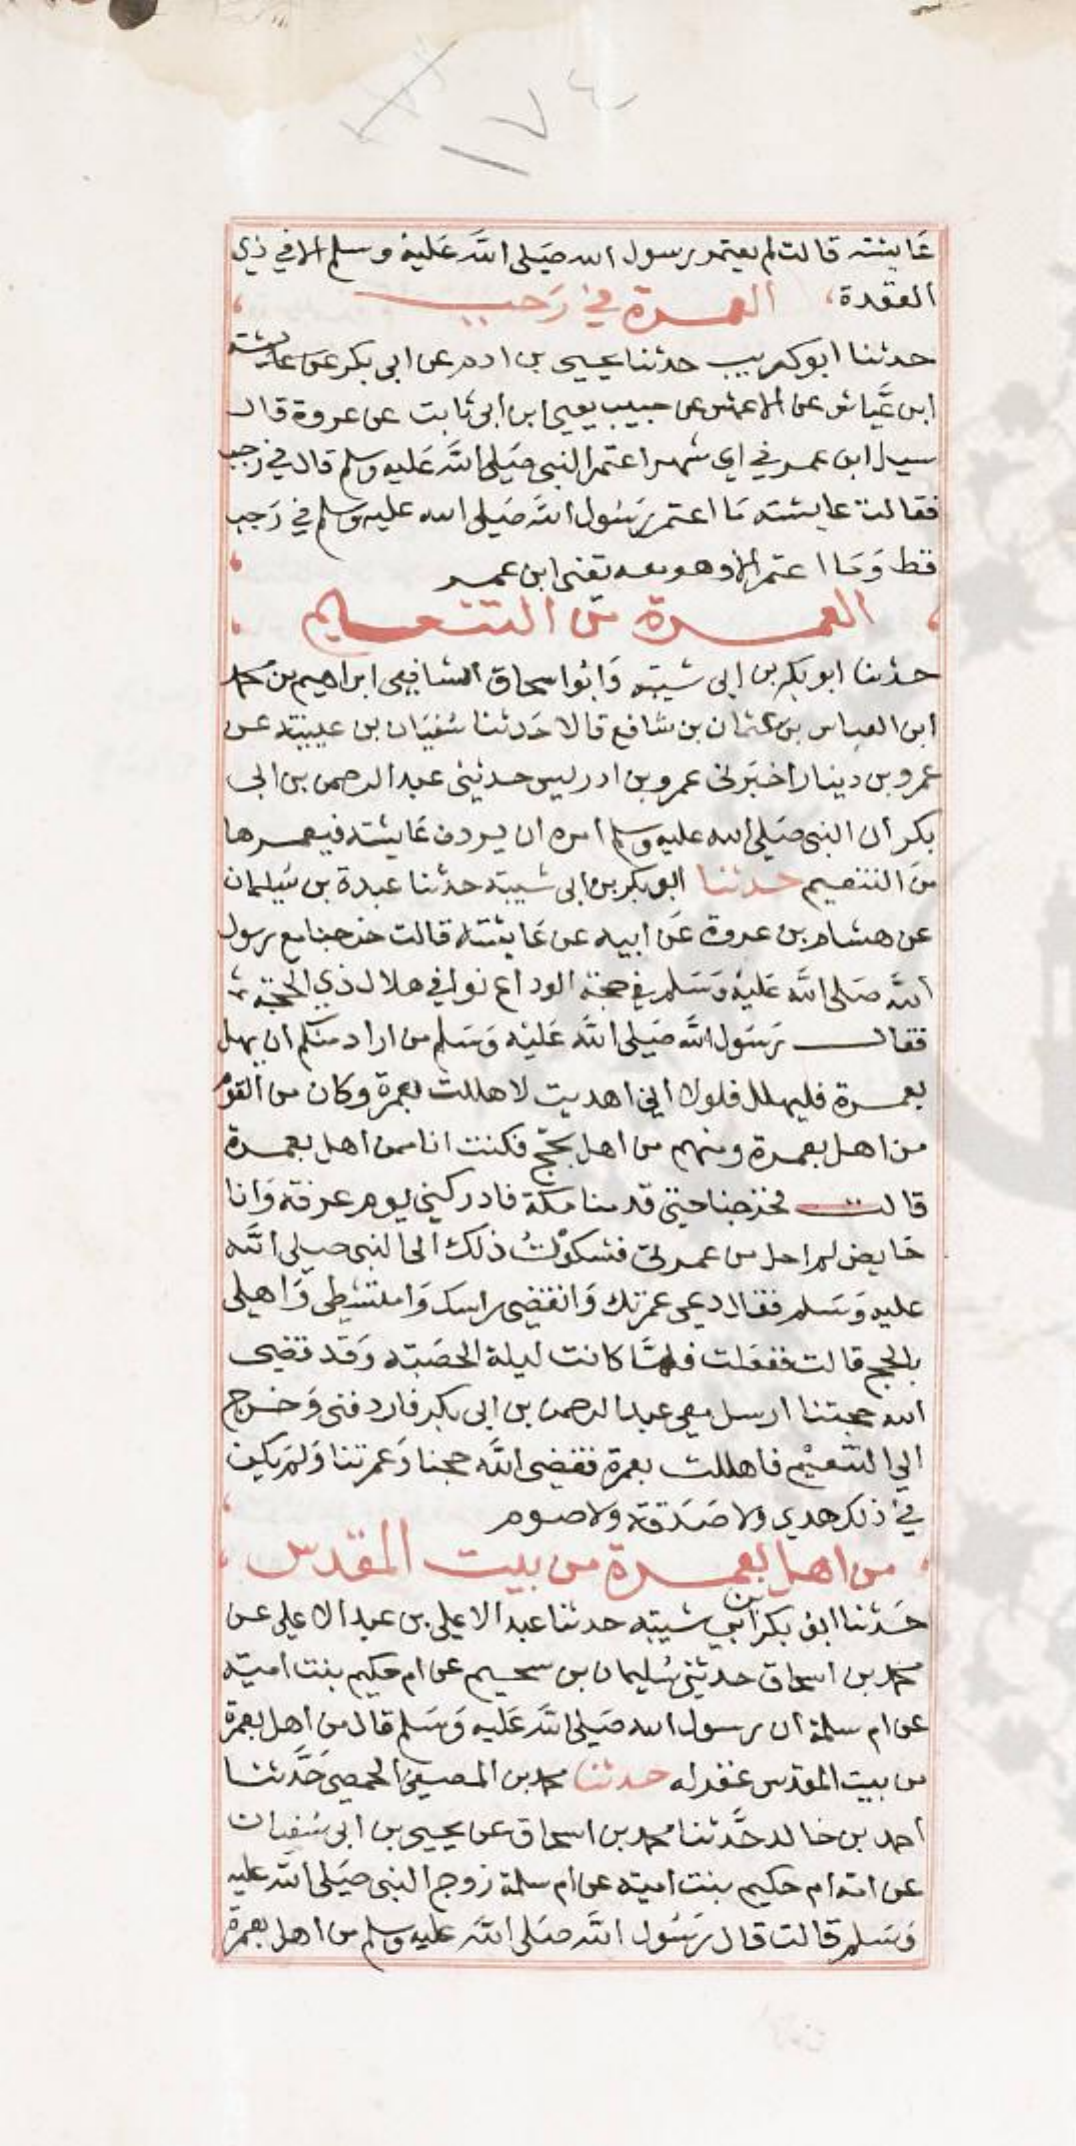 ١٧٤
عَايشته قالت لم يعتمر رسول الله صَلى الله عَليهْ وسلم الا في ذي
القعدة، العمرة في رَجب
حدثنا ابوكريب حدثنا يحيى بن ادم عن ابى بكر عن عايشته
ابن عَّياش عن الاعمش عن حبيب يعني ابن ابى ثابت عن عروة قال
سيل ابن عمر في اي شهر اعتمر النبي صَلى الله عَليه وسلم قال في رجب
فقالت عايشته مَا اعتمر رَسُول الله صَلى الله عليه وسلم في رَجب
قط وَمَا اعتمر الا وهو معه تعني ابن عمر
العمرة من التنعيم
حدثنا ابو بكر بن ابى شيبته وَابُوا سحاق الشافعي ابراهيم بن محمد
ابن العباس بن عثمان بن شافع قالا حَدثنا سُفيَان بن عيينته عن
عمرو بن دينار اخبَرنى عمرو بن ادريس حدثينى عبد الرحمن بن ابى
بكر ان النبى صَلى الله عليه وسلم امره ان يردف عَايشته فيعمرها
منَ التنعيم حدثنا ابو بكر بن ابى شيبته حدثنا عبدة بن سُليمان
عن هشام بن عروة عَن ابيه عن عَايشته قالت خرجنا مع رسول
الله صَلى الله عَليهْ وَسَلم في حجة الوداع نوافي هلال ذي الحجة
فقال رَسَول الله صَلى الله عَليْه وَسَلم من اراد منكم ان يهل
بعمرة فليهلل فلولا اني اهديت لاهللت بعمرة وكان من القوم
من اهل بعمرة ومنهم من اهل بحجّ فكنت انا ممن اهل بعمرة
قالت فخرجنا حتي قدمنا مكة فادركني يوم عرفته وَانا
حَايض لم احل من عمرتى فشكوْتُ ذلك الى النبى صلى الله
عليه وَسَلم فقال دعى عمرتك وَانقضي راسك وَامتشطى وَاهلى
بالحج قالت ففعَلت فلمَّا كانت ليلة الحصَبته وَقد قضى
الله حجتنا ارسل معي عبد الرحمن بن ابى بكر فاردفنى وَخرج
الي التنعيْم فاهللت بعمرة فقضى الله حجنا وَعمرتنا وَلم يكن
في ذلك هدي ولا صَدَقة ولا صوم
من اهل بعمرة من بيت المقدس
حَدثنا ابو بكر بن ابي شيبته حدثنا عبد الاعلى بن عبد الاعلى عن
محمد بن اسحاق حدثني سُليمان بن سحيم عن ام حكيم بنت اميته
عن ام سلمة ان رسول الله صَلى الله عَليه وَسَلم قال من اهل بعمرة
من بيت المقدس غفر له حدثنا محمد بن المصفى الحمصي حَدَّثنا
احمد بن خالد حَدَّثنا محمد بن اسحاق عن يحيى بن ابى سُفيان
عن امه ام حكيم بنت اميته عن ام سلمة زوج النبى صَلى الله عليه
وَسَلم قالت قال رَسُول الله صَلى الله عليه وسلم من اهل بعمرة